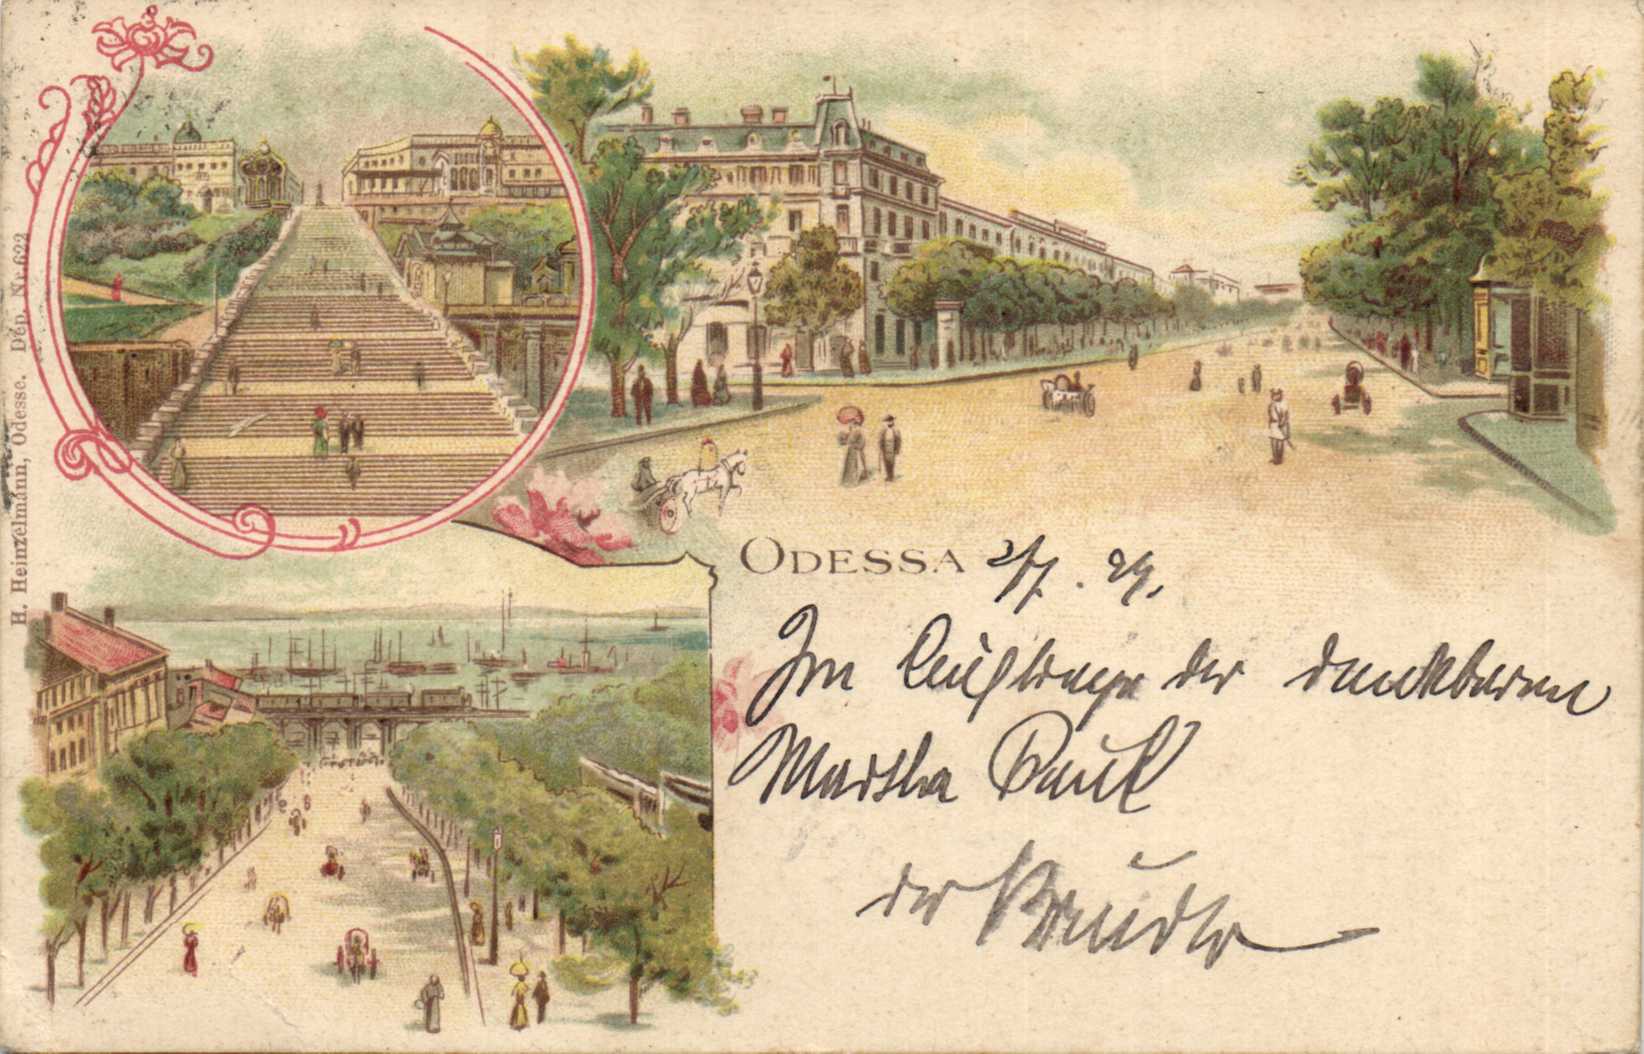 H. Heinzelmánn, Odesse. Dep. Nr 622
ODESSA 2/7. 99.
Im Auftrage der dankbaren
Martha Paul
der Bruder